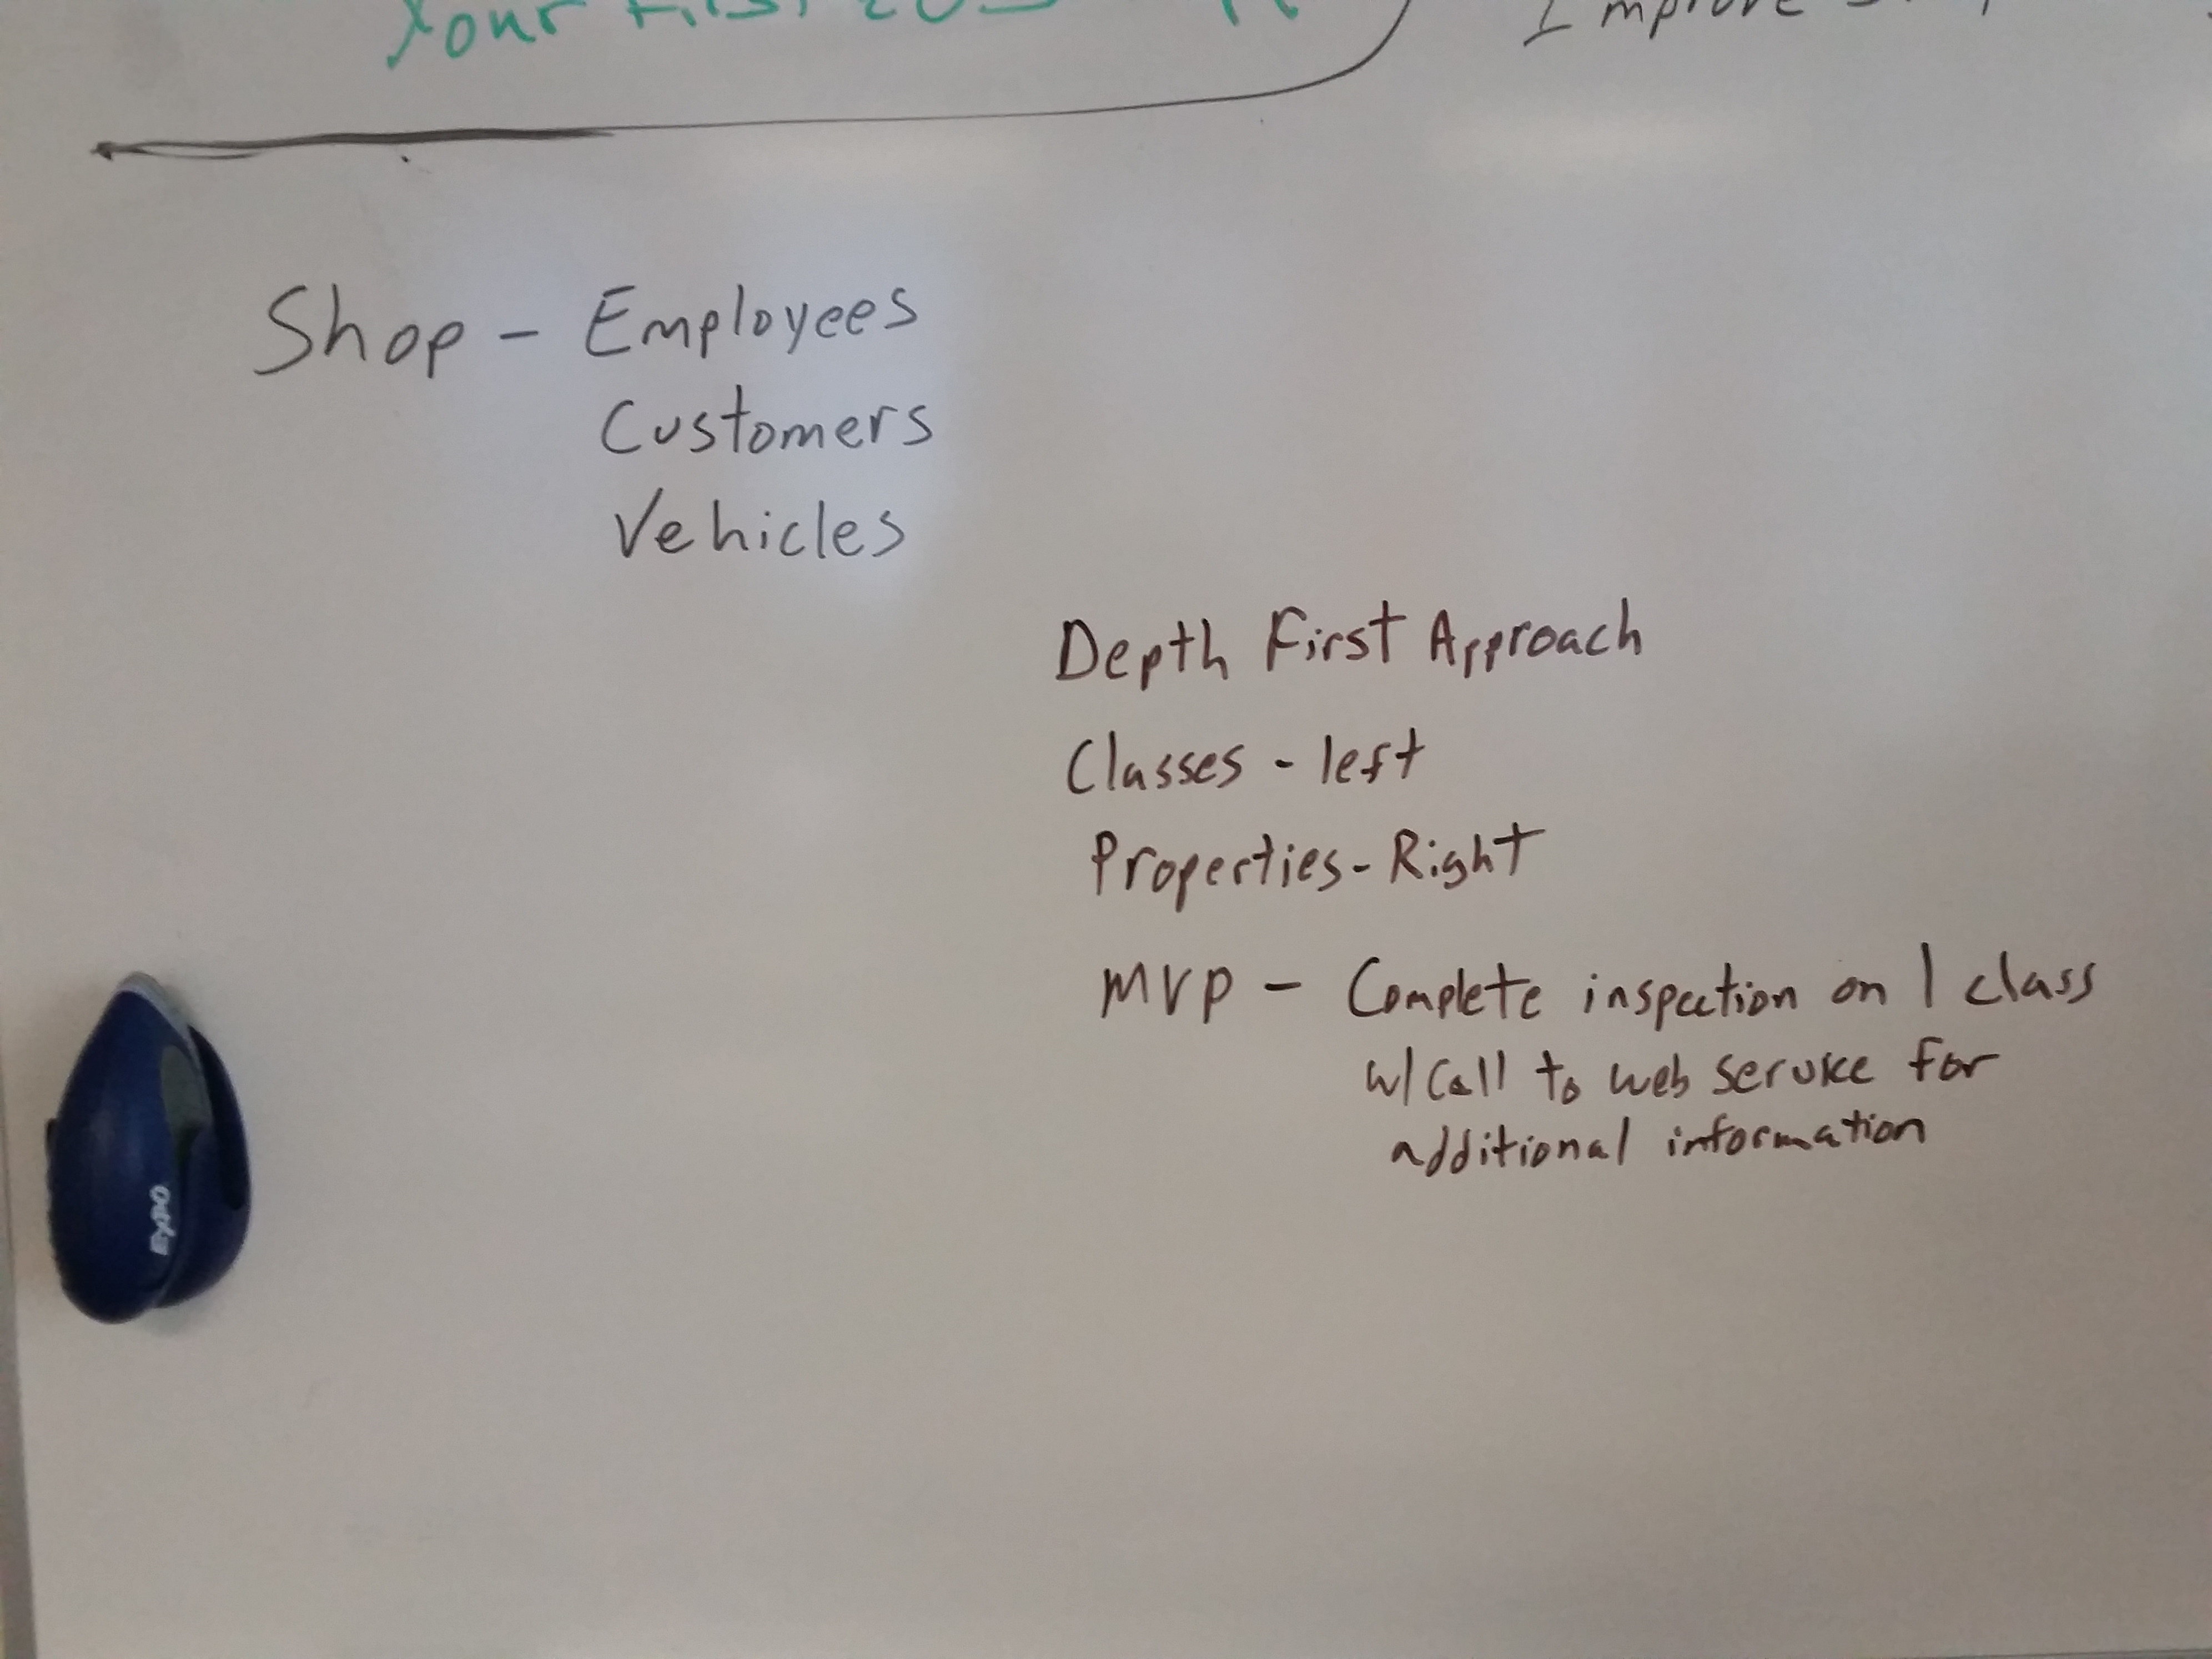 Your First
Improve
Shop - Employees
Customers
Vehicles
Depth First Approach
Classes - left
Properties - Right
MVP - Complete inspection on 1 class
w/ call to web service for
additional information
expo